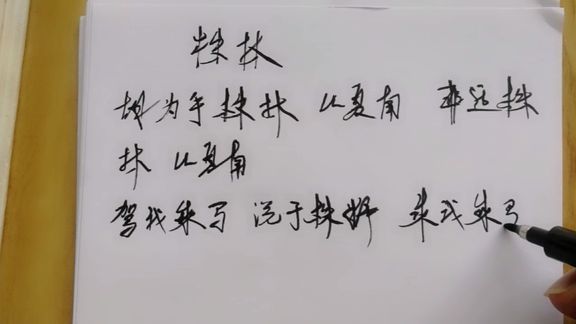 株林
胡为乎株林 从夏南 匪适株
林 从夏南
驾我乘马 说于株野 乘我乘马